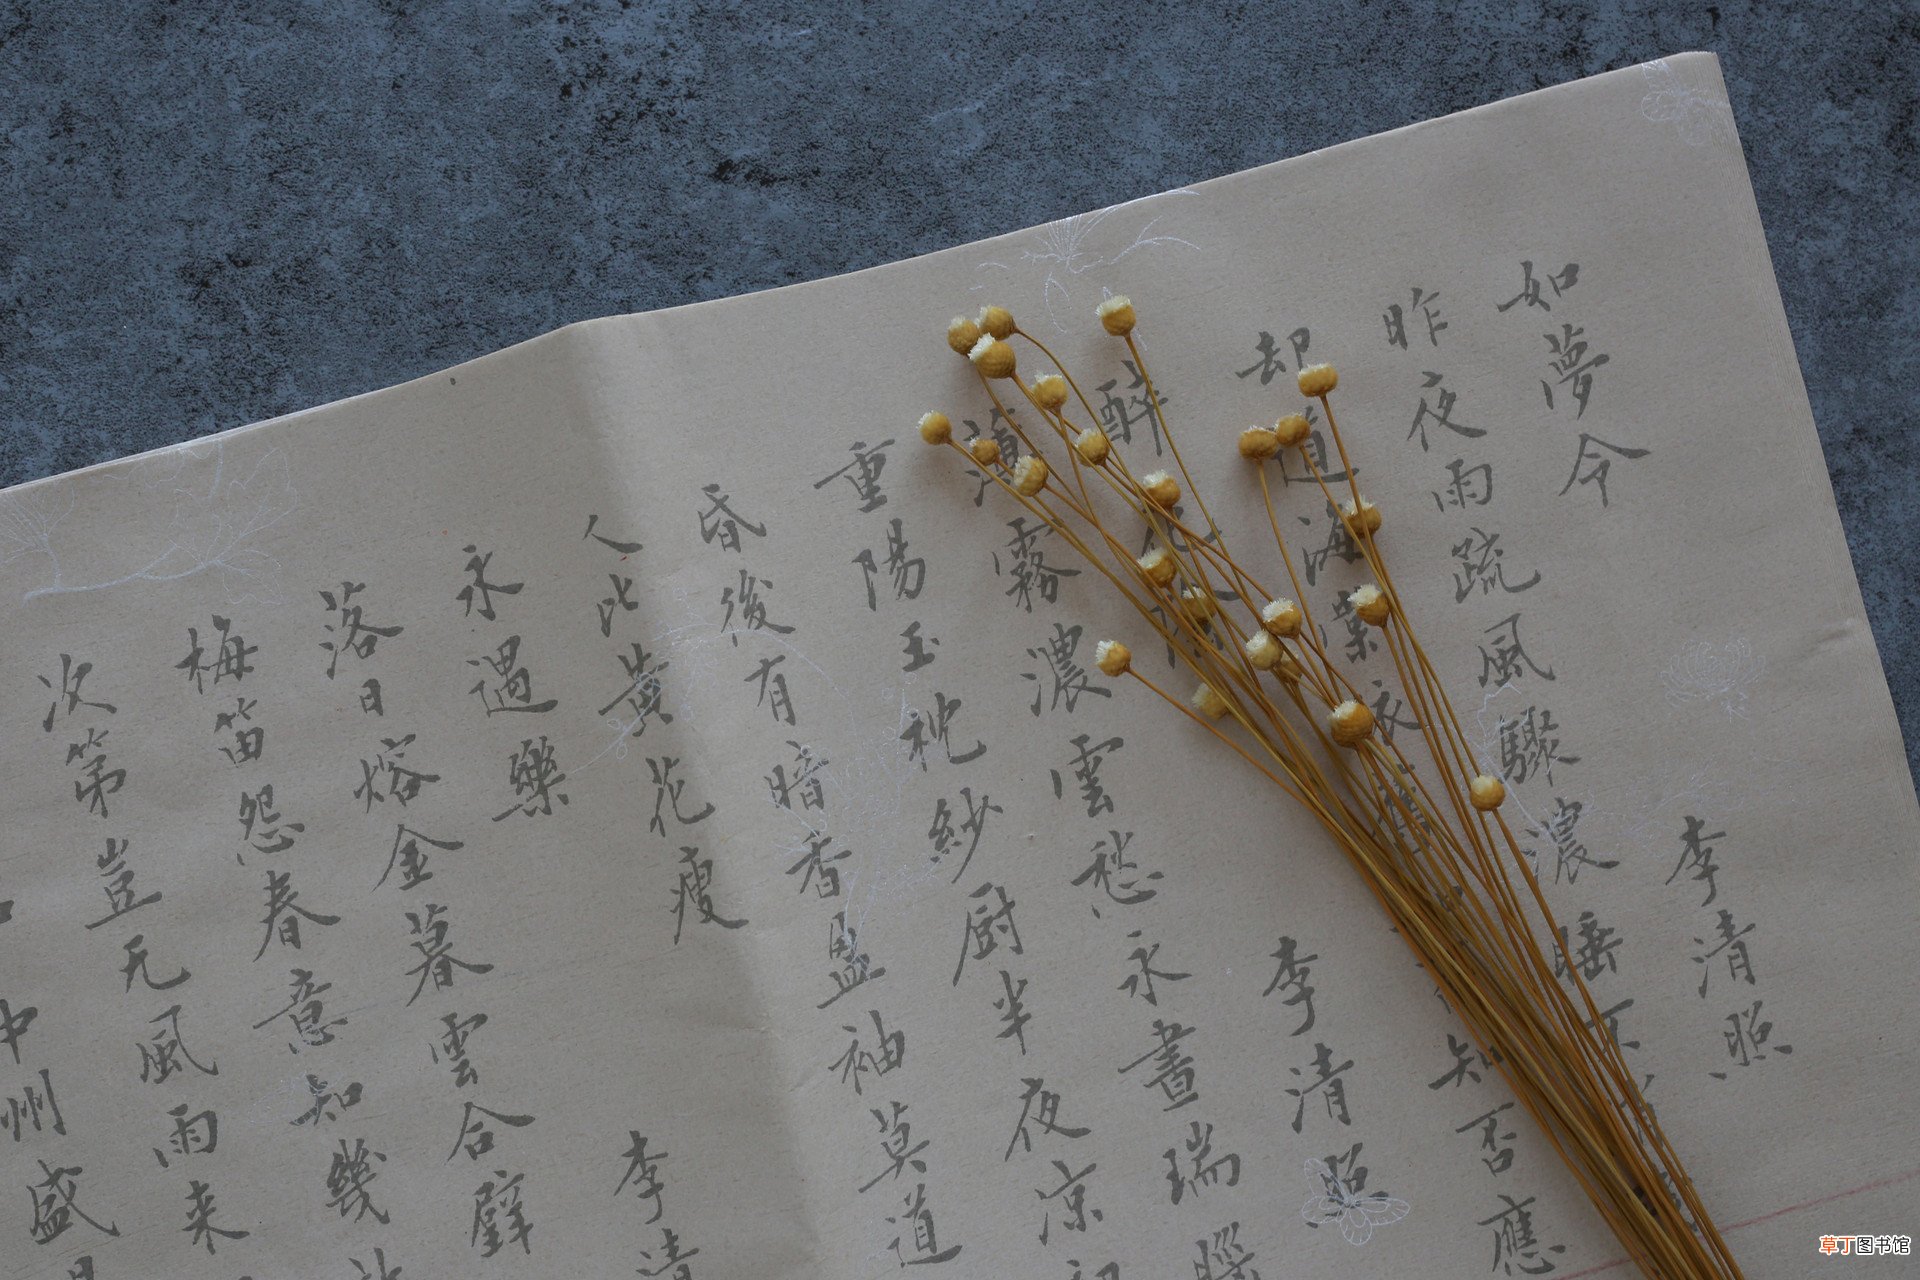 如夢令 李清照
昨夜雨疏風驟濃睡不
却道海棠依舊知否應
醉花陰 李清照
薄霧濃雲愁永晝瑞腦
重陽玉枕紗厨半夜凉初
昏後有暗香盈袖莫道
人比黄花瘦
永遇樂 李清
落日熔金暮雲合璧
梅笛怨春意知幾
次第豈无風雨来
中州盛日
草丁图书馆